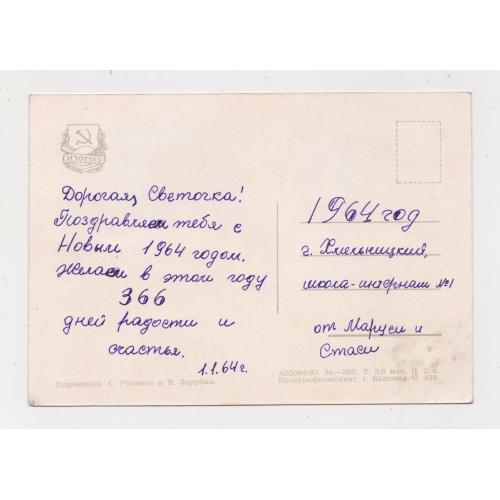 ИЗОГИЗ
Дорогая, Светочка!
Поздравляем тебя с
Новым 1964 годом.
Желаем в этом году
366
дней радости и
счастья.
1.1.64 г.
Художники С. Русаков и В. Зарубин.
1964 год
г. Хмельницкий,
школа-интернат №1
от Маруси и
Стаси
А05394-63 За—265. Т. 3,8 млн. Ц. 3 к.
Полиграфкомбинат, г. Калинин. З. 434.